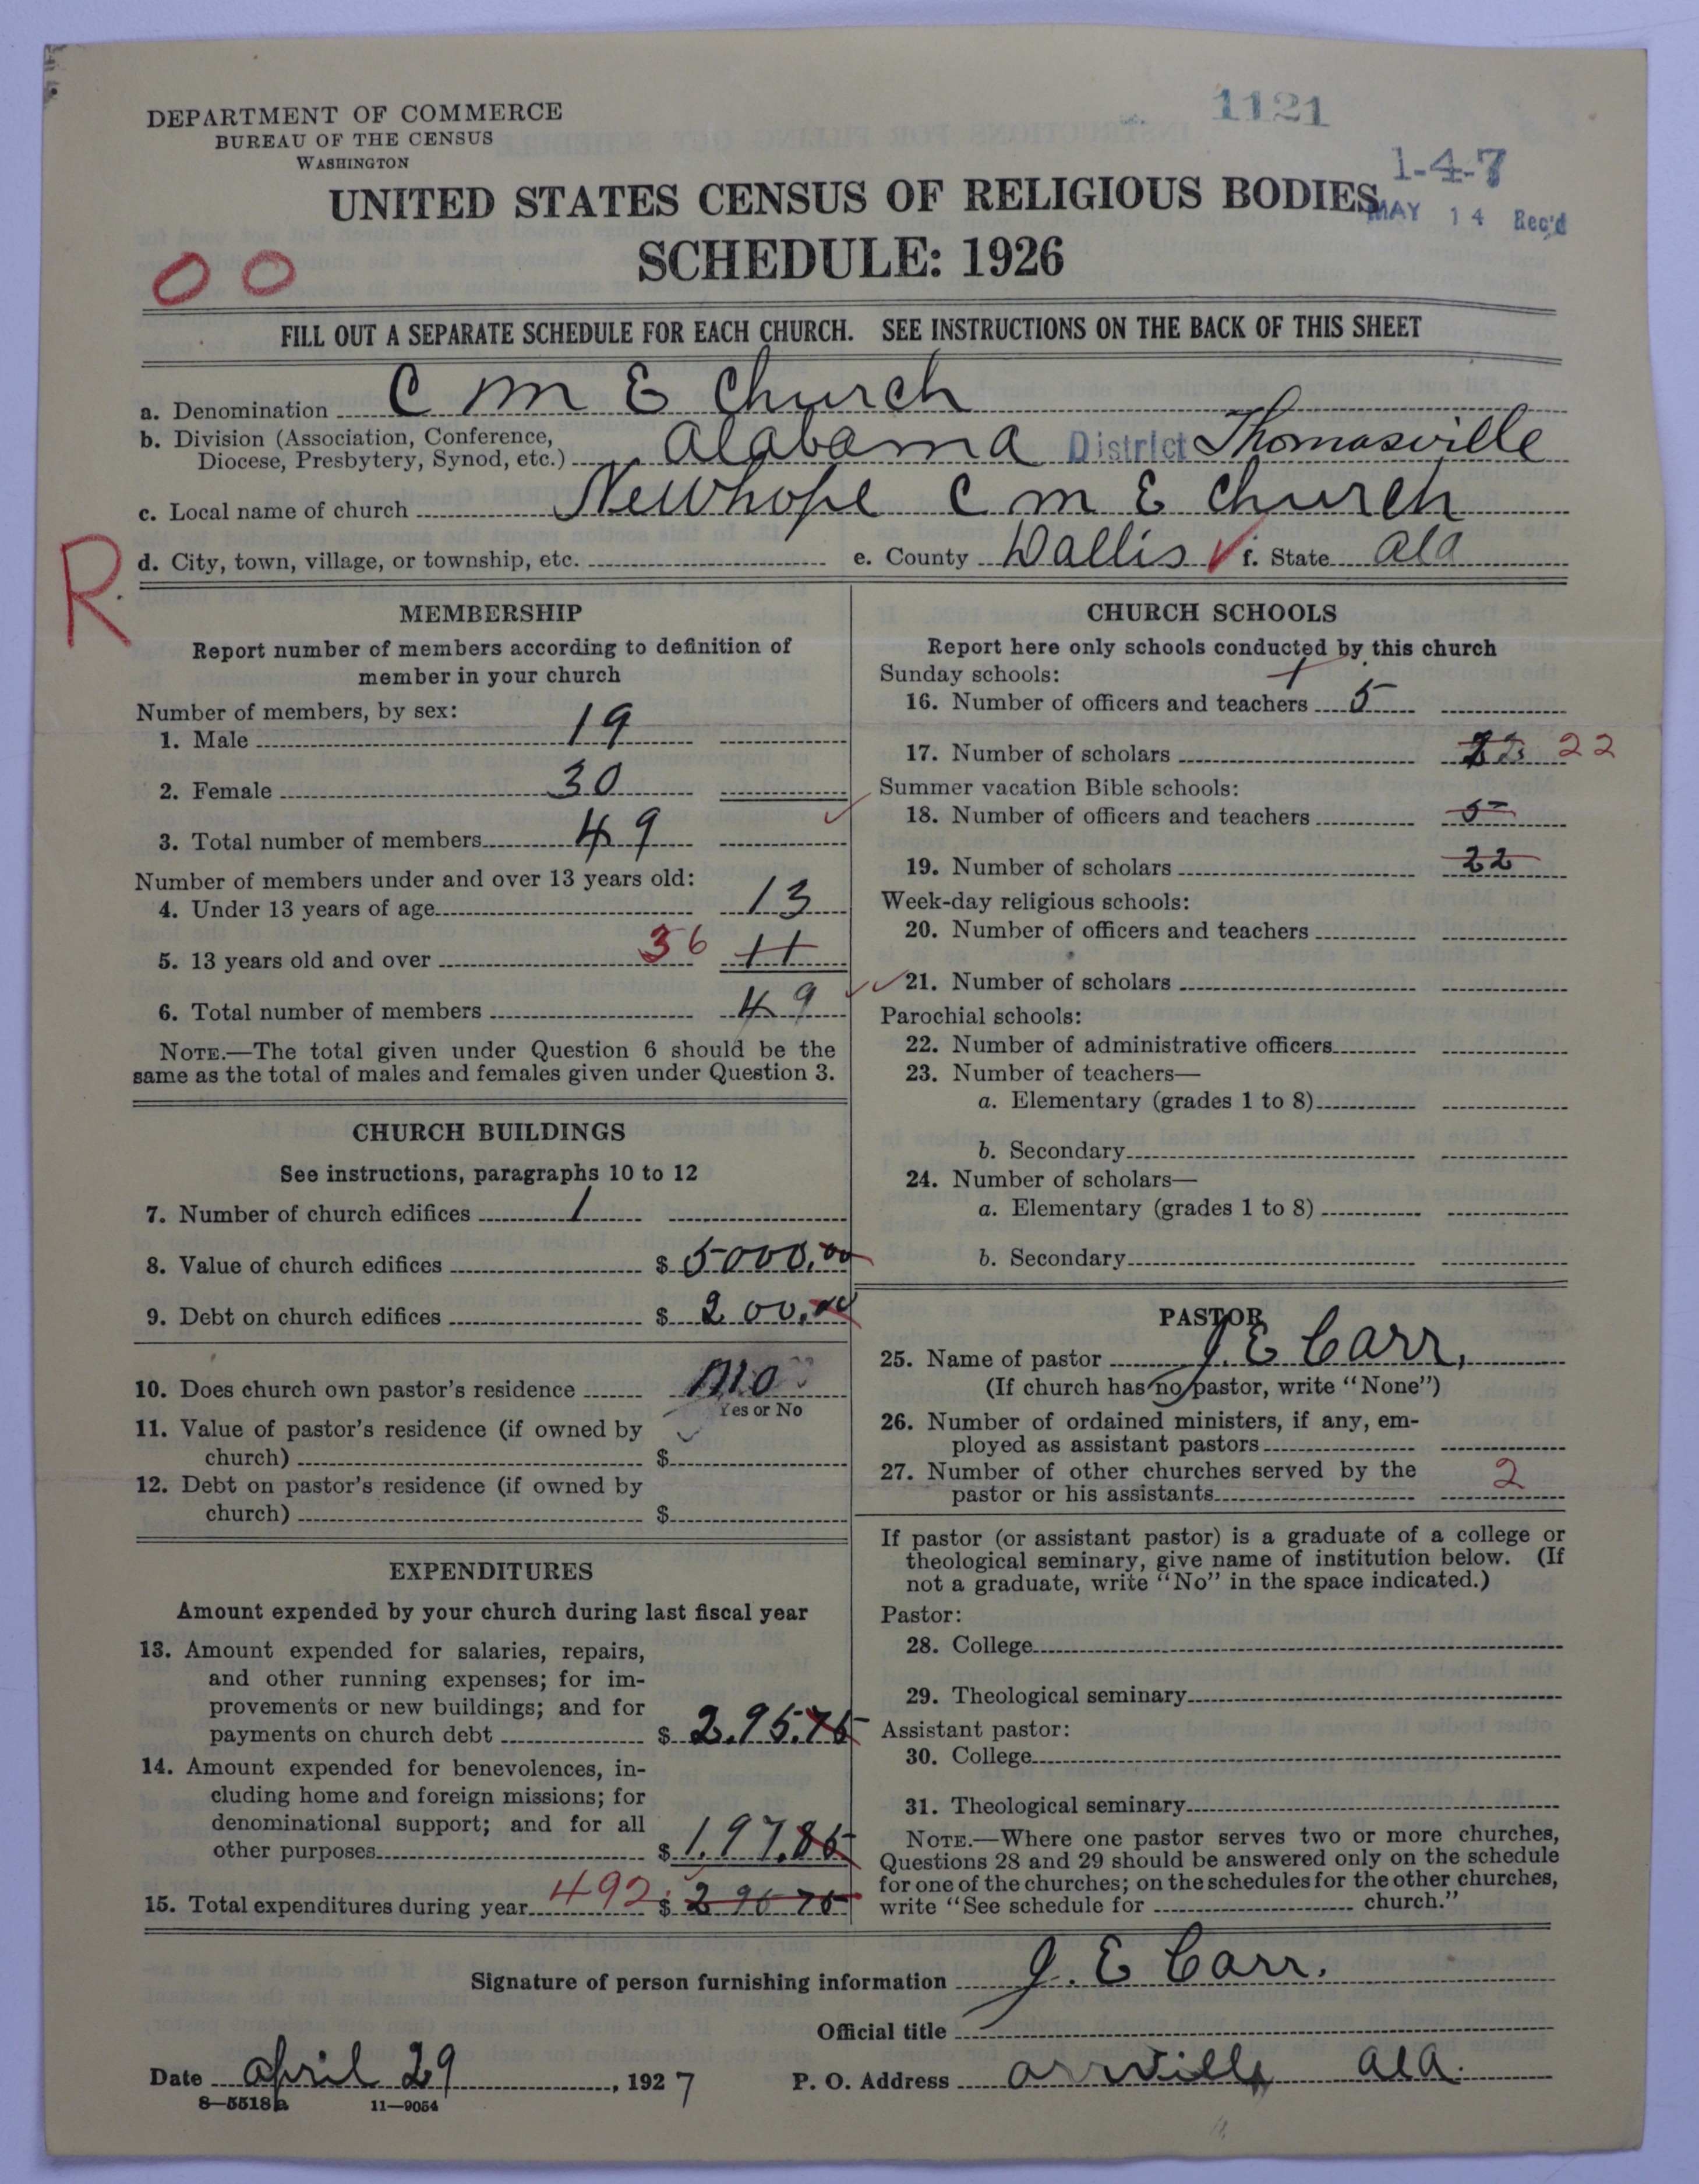 DEPARTMENT OF COMMERCE
BUREAU OF THE CENSUS
WASHINGTON
1121
1-4-7
UNITED STATES CENSUS OF RELIGIOUS BODIES
MAY 14 Rec'd
SCHEDULE: 1926
00
FILL OUT A SEPARATE SCHEDULE FOR EACH CHURCH. SEE INSTRUCTIONS ON THE BACK OF THIS SHEET
a. Denomination C M E Church
b. Division (Association, Conference, Diocese, Presbytery, Synod, etc.) Alabama District Thomasville
c. Local name of church Newhope C M E Church
R
d. City, town, village, or township, etc. e. County Dallis f. State Ala
MEMBERSHIP
Report number of members according to definition of
member in your church
Number of members, by sex:
1. Male 19
2. Female 30
3. Total number of members 49
Number of members under and over 13 years old:
4. Under 13 years of age 13
5. 13 years old and over 36 11
6. Total number of members 49
NOTE.—The total given under Question 6 should be the
same as the total of males and females given under Question 3.
CHURCH BUILDINGS
See instructions, paragraphs 10 to 12
7. Number of church edifices 1
8. Value of church edifices $ 5000.00
9. Debt on church edifices $ 200.00
10. Does church own pastor's residence No
Yes or No
11. Value of pastor's residence (if owned by
church) $
12. Debt on pastor's residence (if owned by
church) $
EXPENDITURES
Amount expended by your church during last fiscal year
13. Amount expended for salaries, repairs,
and other running expenses; for im-
provements or new buildings; and for
payments on church debt $ 2.95.75
14. Amount expended for benevolences, in-
cluding home and foreign missions; for
denominational support; and for all
other purposes $ 1.97.85
15. Total expenditures during year 492 $ 296 75
CHURCH SCHOOLS
Report here only schools conducted by this church
Sunday schools: 1
16. Number of officers and teachers 5
17. Number of scholars 22
Summer vacation Bible schools:
18. Number of officers and teachers 5
19. Number of scholars 22
Week-day religious schools:
20. Number of officers and teachers
21. Number of scholars
Parochial schools:
22. Number of administrative officers
23. Number of teachers—
a. Elementary (grades 1 to 8)
b. Secondary
24. Number of scholars—
a. Elementary (grades 1 to 8)
b. Secondary
PASTOR
25. Name of pastor J. E Carr,
(If church has no pastor, write "None")
26. Number of ordained ministers, if any, em-
ployed as assistant pastors
27. Number of other churches served by the
pastor or his assistants 2
If pastor (or assistant pastor) is a graduate of a college or
theological seminary, give name of institution below. (If
not a graduate, write "No" in the space indicated.)
Pastor:
28. College
29. Theological seminary
Assistant pastor:
30. College
31. Theological seminary
NOTE.—Where one pastor serves two or more churches,
Questions 28 and 29 should be answered only on the schedule
for one of the churches; on the schedules for the other churches,
write "See schedule for church."
Signature of person furnishing information J. E Carr.
Official title
Date april 29, 1927 P. O. Address orrville ala.
8—5518a 11—9054